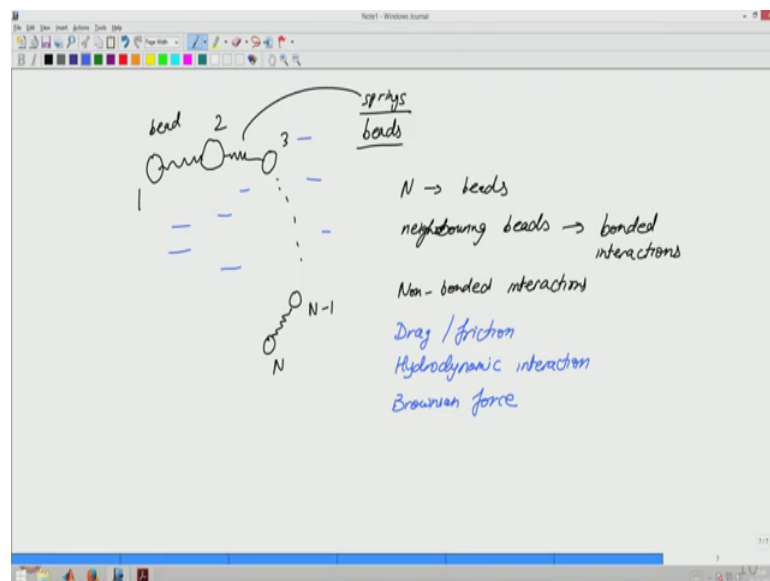 Note1 - Windows Journal
File Edit View Insert Actions Tools Help
Page Width
B I
springs
beads
bead
2
3
1
N → beads
neighbouring beads → bonded
interactions
Non-bonded interactions
N-1
N
Drag / friction
Hydrodynamic interaction
Brownian force
7/7
7